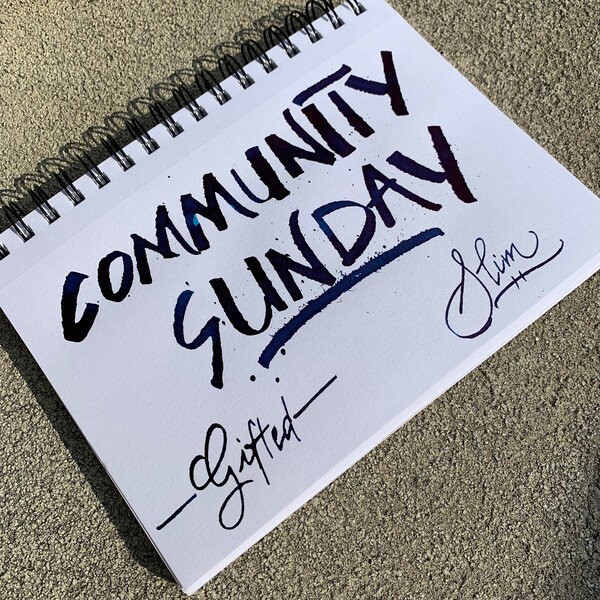 COMMUNITY
SUNDAY
Slim
-Gifted-